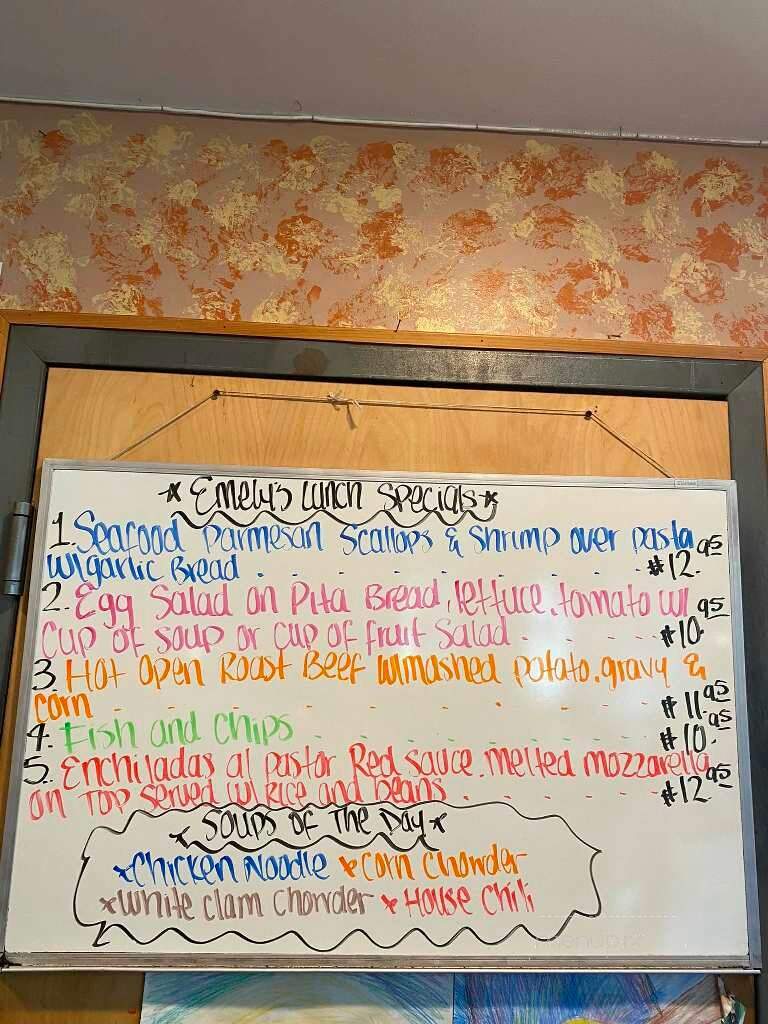 * Emely's Lunch Specials *
1. Seafood Parmesan Scallops & Shrimp over pasta
w/garlic Bread . . . . . . . . $12.95
2. Egg Salad on Pita Bread, lettuce, tomato w/
cup of soup or cup of fruit Salad . . . . $10.95
3. Hot Open Roast Beef w/mashed potato, gravy &
corn . . . . . . . . $11.95
4. Fish and Chips . . . . . . . . $10.95
5. Enchiladas al pastor Red sauce, melted mozzarella
on top served w/Rice and beans . . . . $12.95
* Soups of The Day *
* Chicken Noodle * Corn Chowder
* White Clam Chowder * House Chili